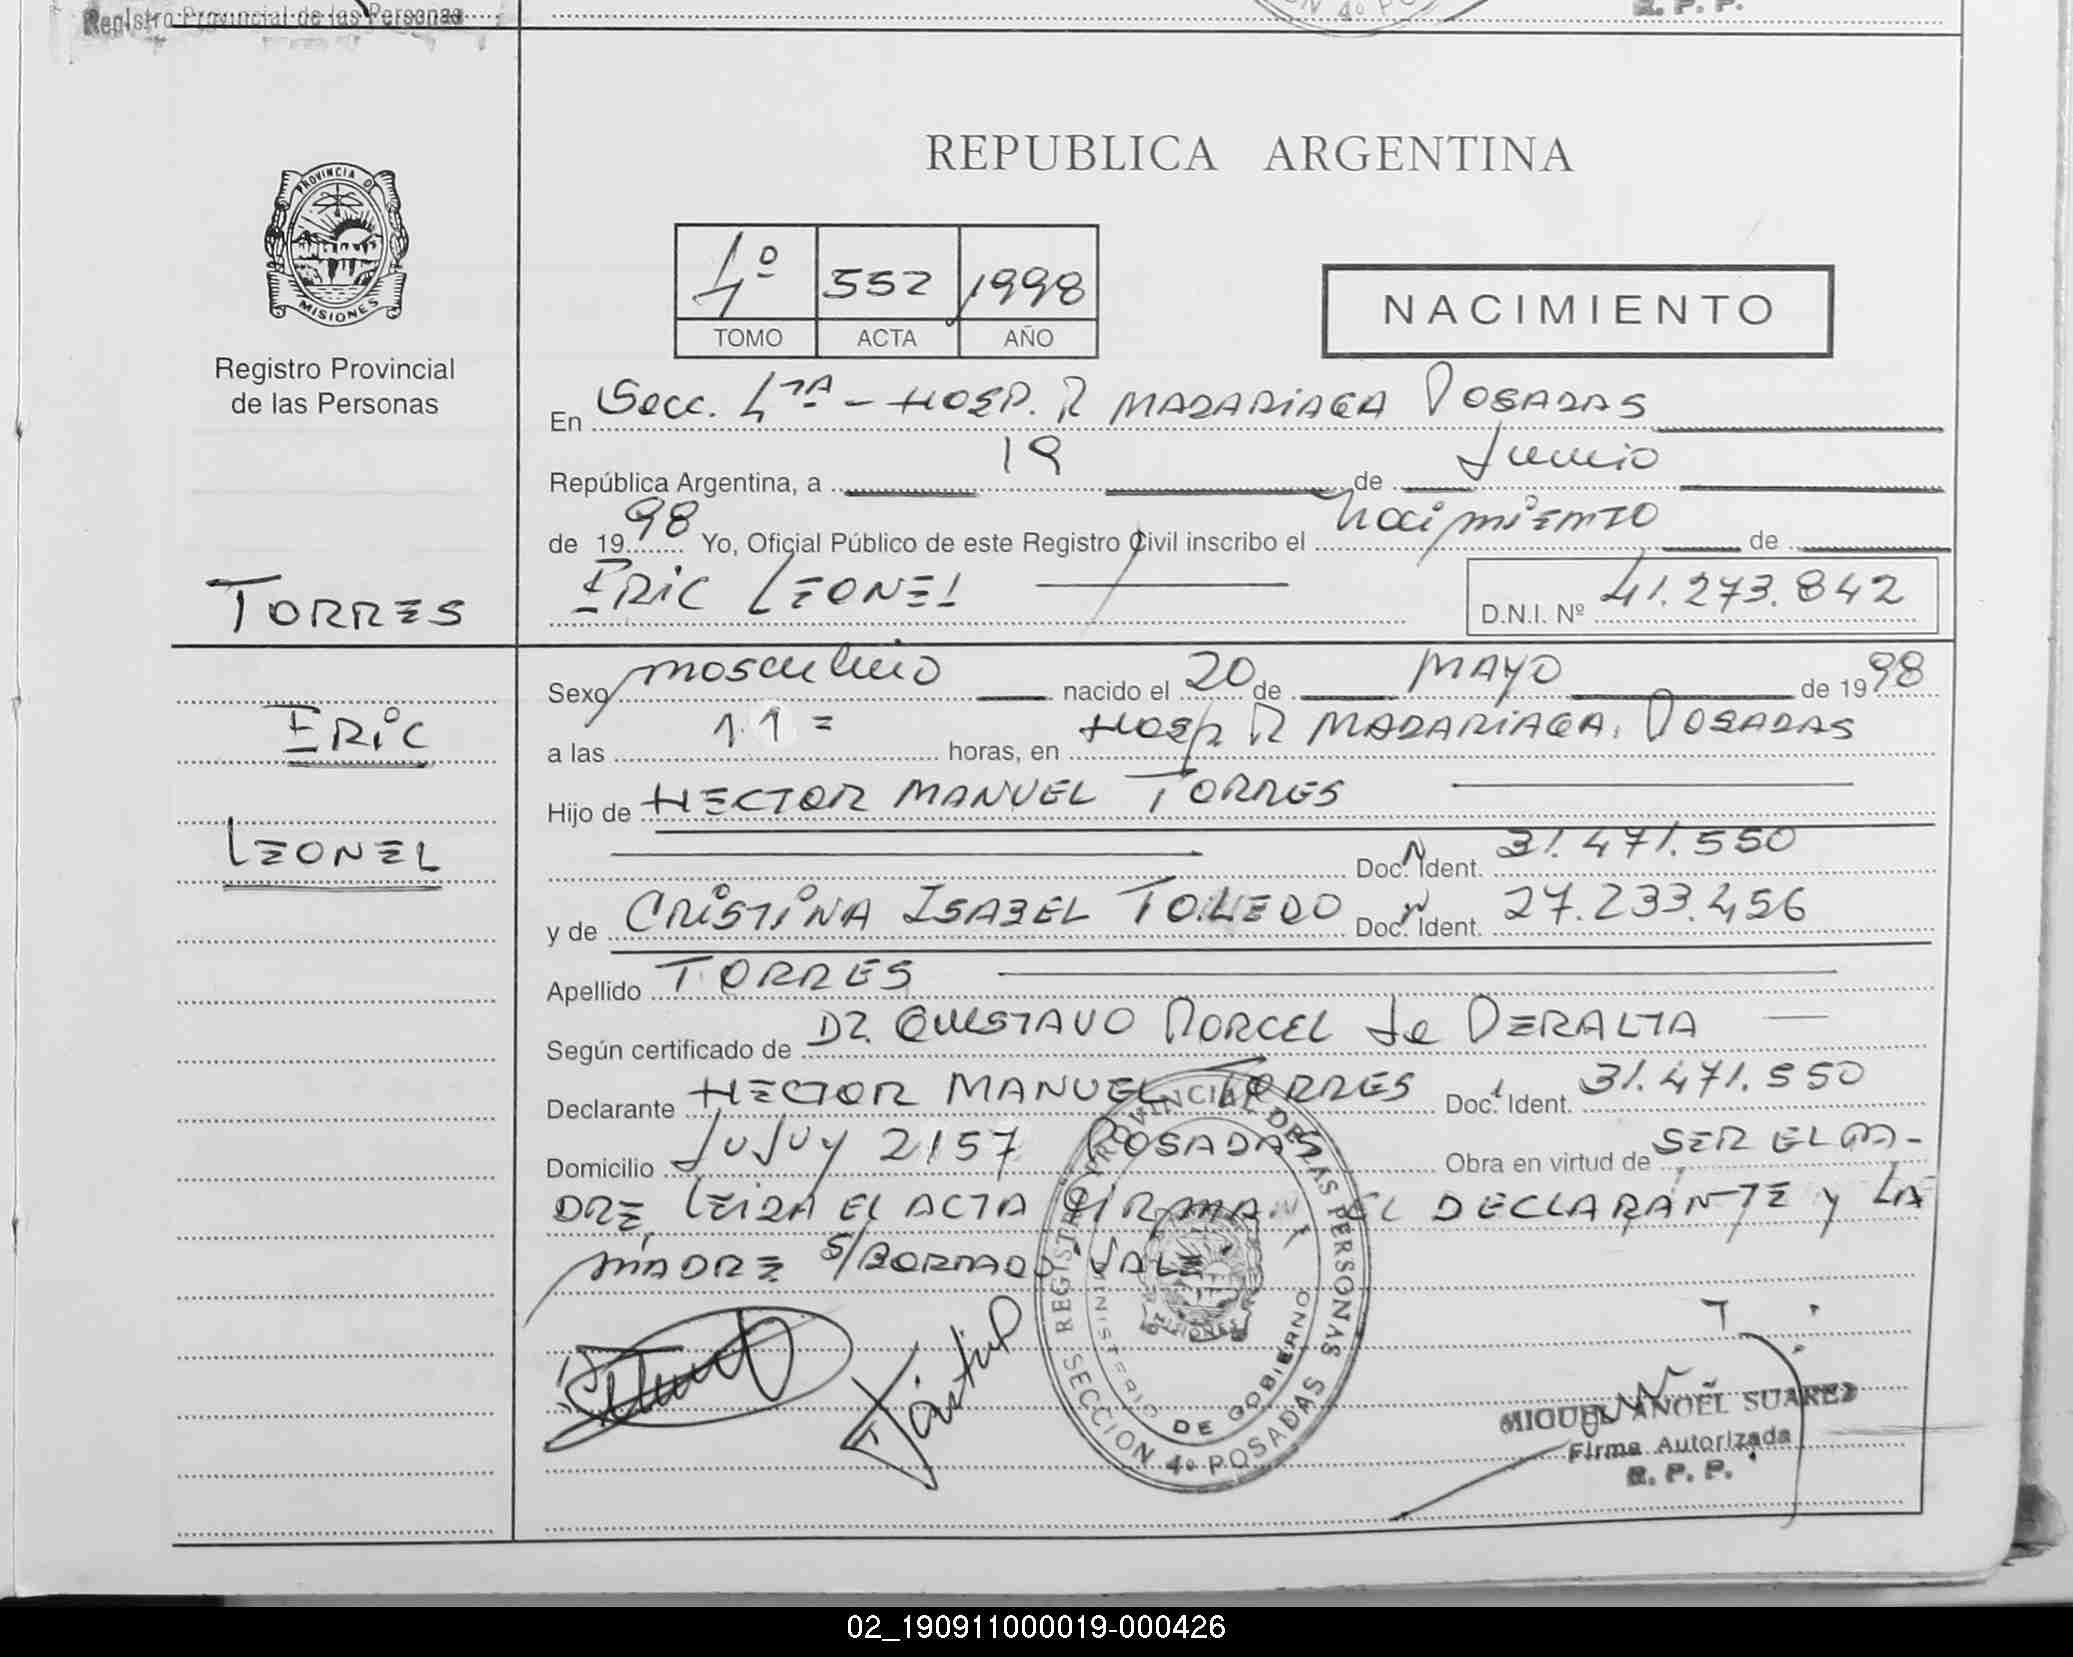 Registro Provincial de las Personas
R. P. P.
PROVINCIA DE
MISIONES
Registro Provincial
de las Personas
REPUBLICA ARGENTINA
4º 552 1998
TOMO ACTA AÑO
NACIMIENTO
En Secc. 4ta - HOSP. R MADARIAGA POSADAS
República Argentina, a 19 de Junio
de 1998 Yo, Oficial Público de este Registro Civil inscribo el Nacimiento de
ERIC LEONEL D.N.I. Nº 41.273.842
TORRES
ERIC
LEONEL
Sexo masculino nacido el 20 de MAYO de 1998
a las 11 = horas, en HOSP R MADARIAGA. POSADAS
Hijo de HECTOR MANUEL TORRES
Doc. Ident. 31.471.550
y de CRISTINA ISABEL TOLEDO Doc. Ident. 27.233.456
Apellido TORRES
Según certificado de Dr. GUSTAVO MARCEL de PERALTA
Declarante HECTOR MANUEL TORRES Doc. Ident. 31.471.550
Domicilio JUJUY 2157 POSADAS Obra en virtud de SER EL PA-
DRE, LEIDA EL ACTA FIRMAN EL DECLARANTE y LA
MADRE S/BORRADO VALE
REGISTRO PROVINCIAL DE LAS PERSONAS
MINISTERIO DE GOBIERNO
MISIONES
SECCION 4º POSADAS
MIGUEL ANGEL SUAREZ
Firma Autorizada
R. P. P.
02_190911000019-000426